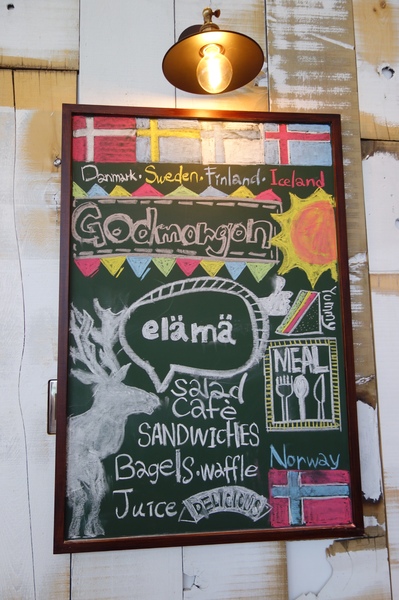 Danmark · Sweden · Finland · Iceland
Godmorgon
Yummy
elämä
MEAL
salad
Cafè
SANDWICHES
Bagels · waffle
Norway
Juice
DELICIOUS